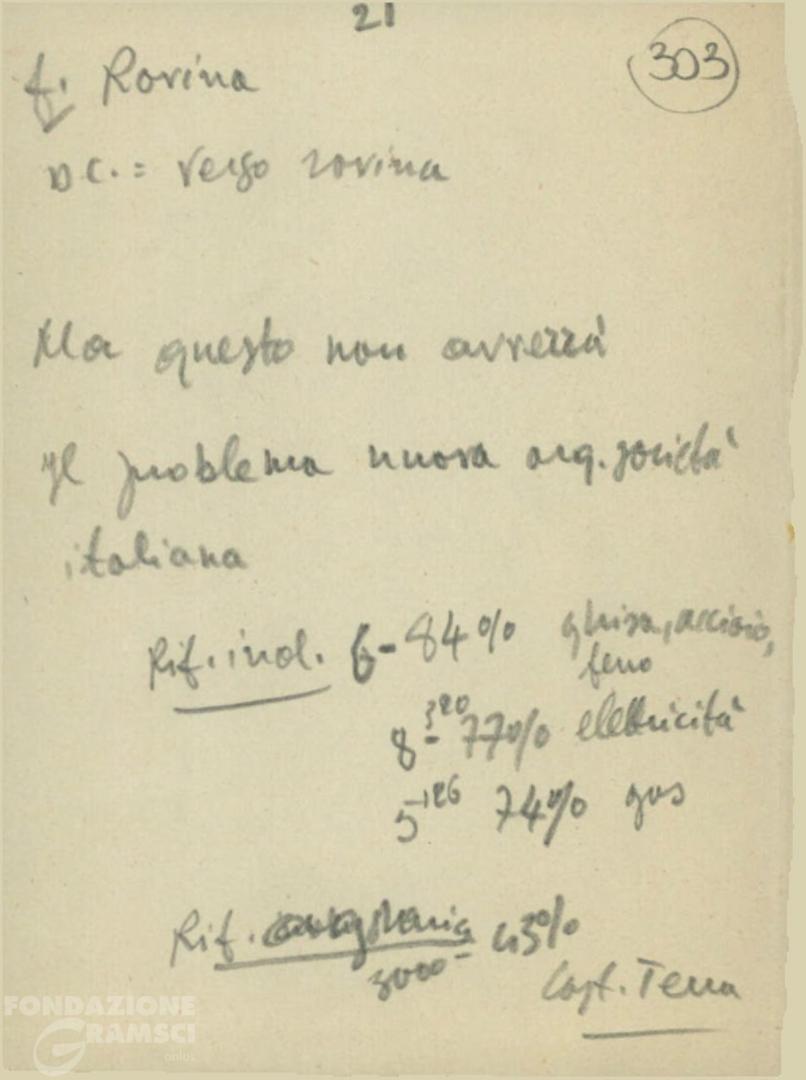 21
303
f. Rovina
D C. = verso rovina
Ma questo non avverrà
Il problema nuova org. società
italiana
Rif. ind. 6 - 84% ghisa, acciaio,
ferro
8 - 320 77% elettricità
5 - 126 74% gas
Rif. 3000 - 43%
Terra
FONDAZIONE
GRAMSCI
onlus